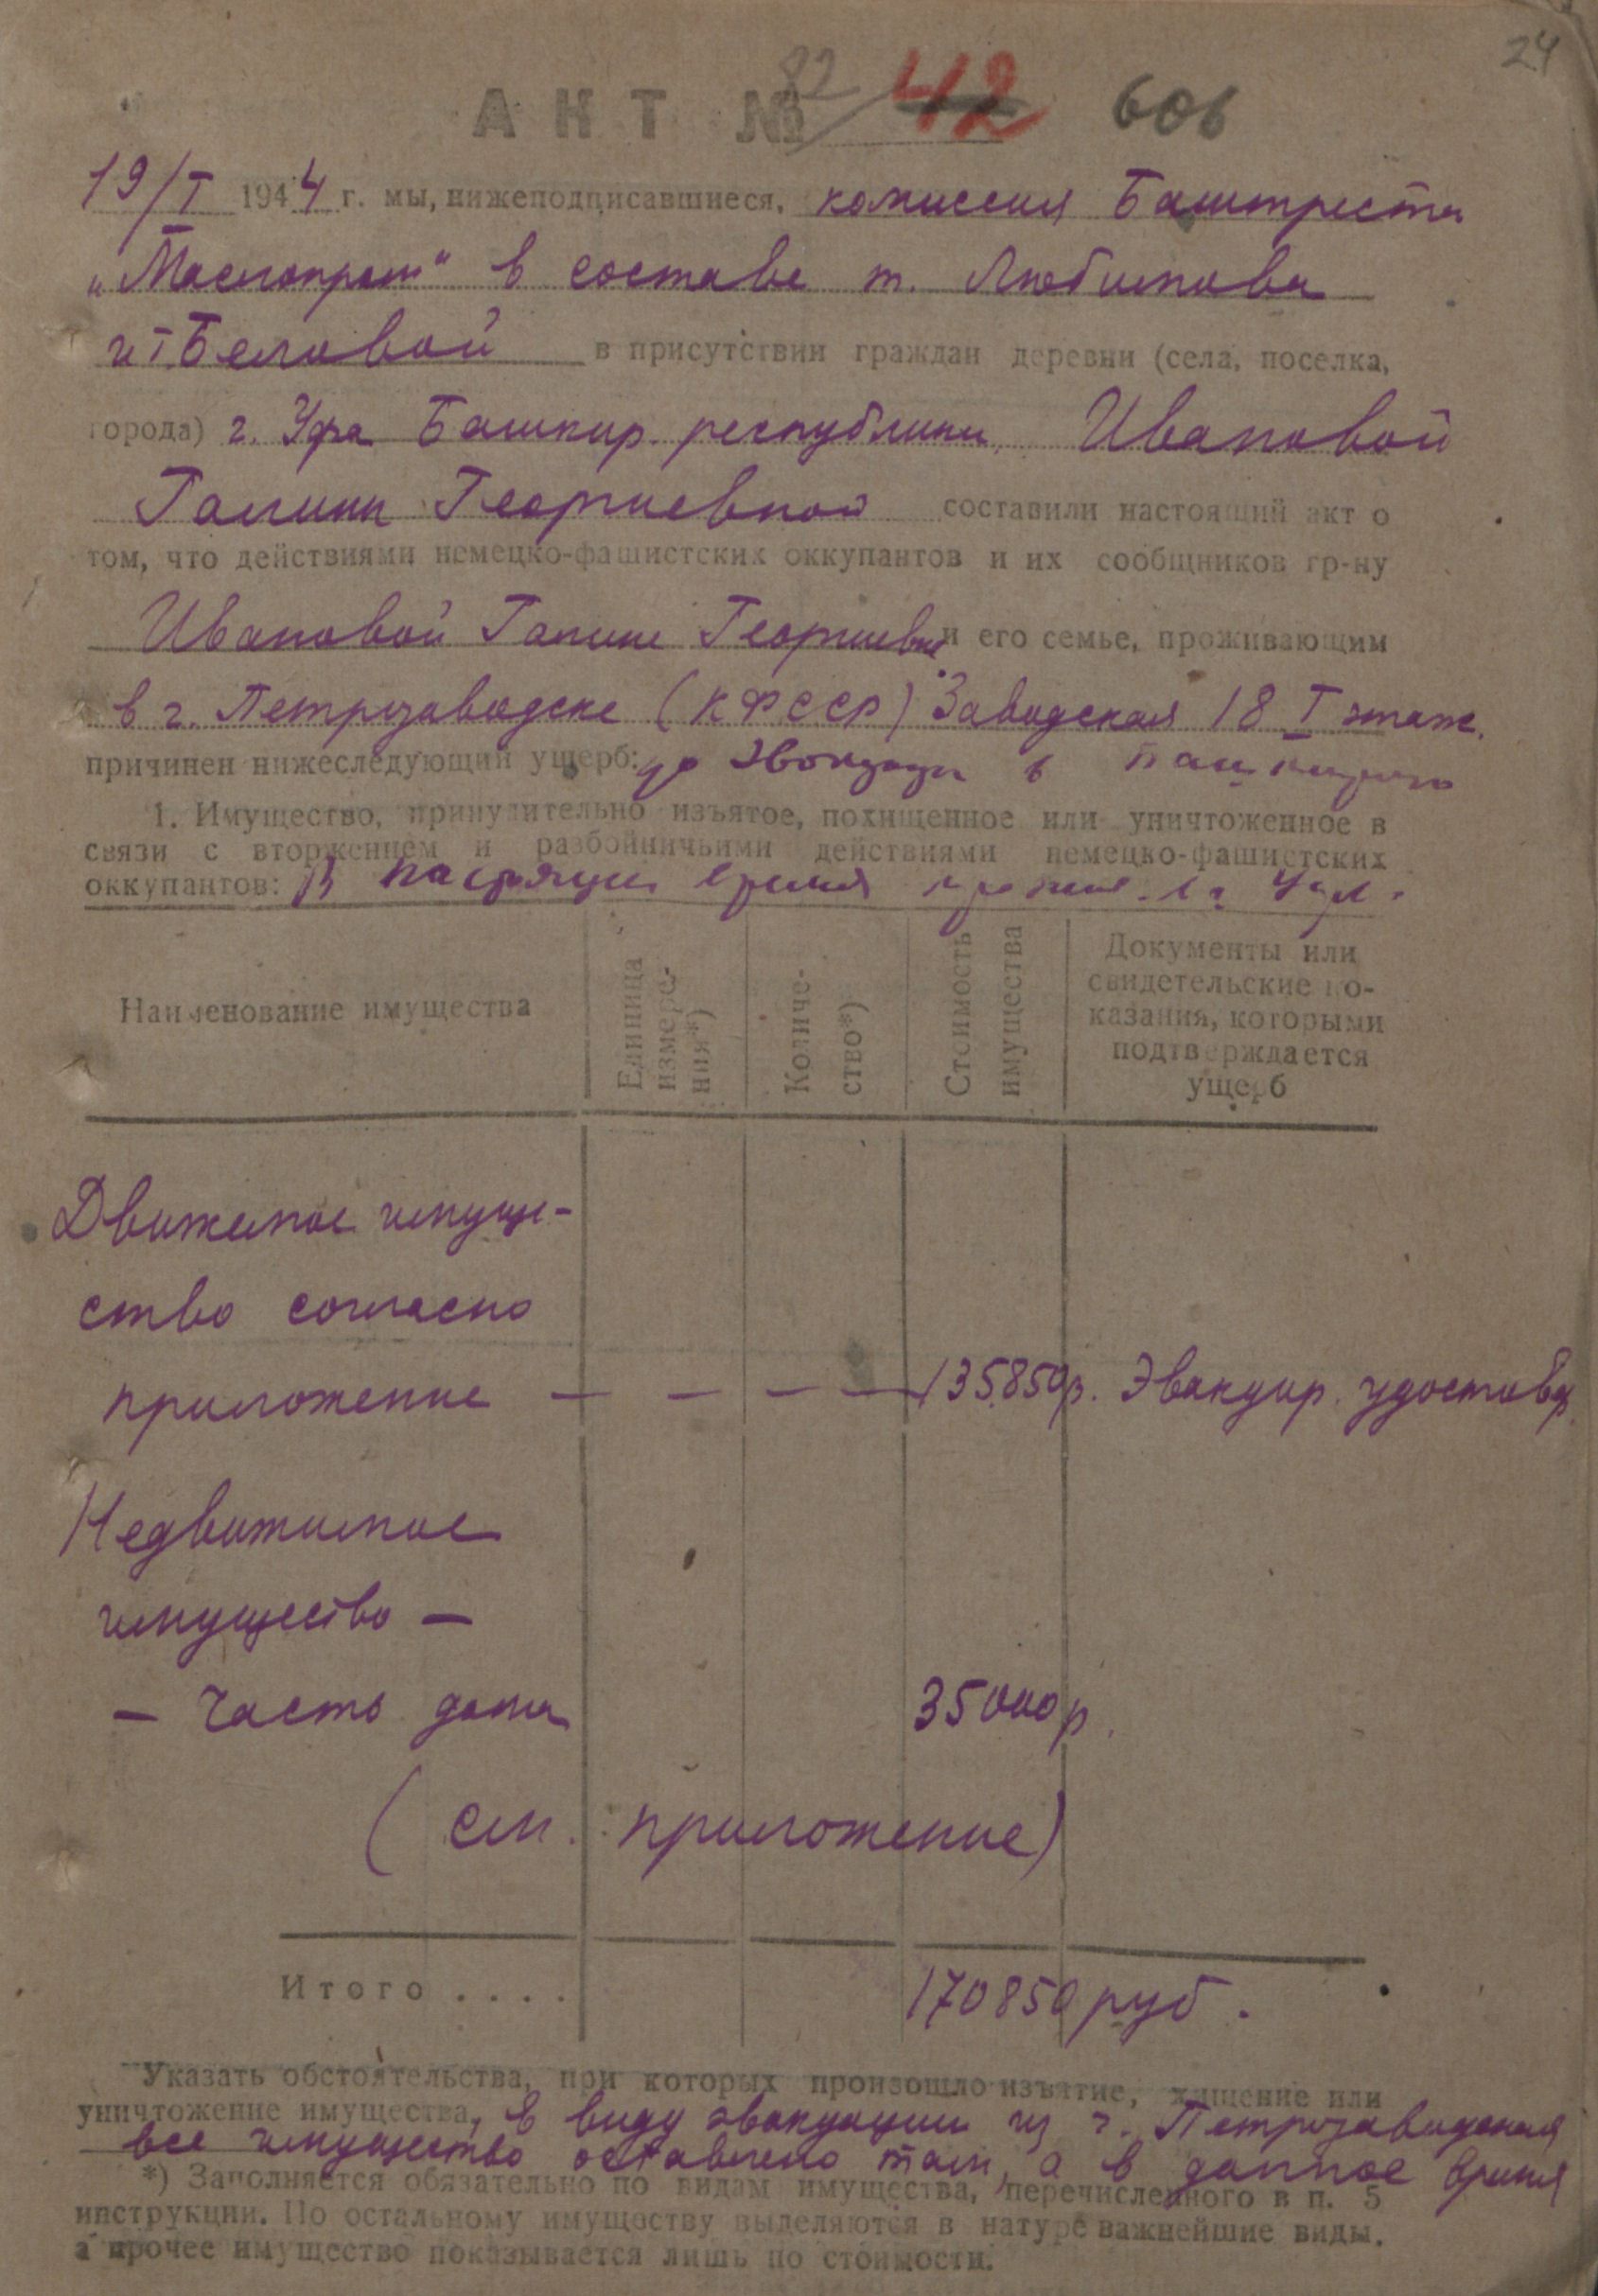 24
АКТ № 82 42 606
19/I 1944 г. мы, нижеподписавшиеся, комиссия Баштреста
„Маслопром" в составе т. Любимова
и т. Беловой в присутствии граждан деревни (села, поселка,
города) г. Уфа Башкир. республики Ивановой
Галины Георгиевной составили настоящий акт о
том, что действиями немецко-фашистских оккупантов и их сообщников гр-ну
Ивановой Галине Георгиевне и его семье, проживающим
в г. Петрозаводске (КФССР) Заводская 18 I этаж.
причинен нижеследующий ущерб: до эвакуации в Башкирию
1. Имущество, принудительно изъятое, похищенное или уничтоженное в
связи с вторжением и разбойничьими действиями немецко-фашистских
оккупантов: В настоящее время
Наименование имущества
Единица измерения*)
Количество*)
Стоимость имущества
Документы или
свидетельские по-
казания, которыми
подтверждается
ущерб
Движимое имуще-
ство согласно
приложение — — — — 135850р. Эвакуир. удостовер.
Недвижимое
имущество —
— Часть дома 35000р.
(см. приложение)
Итого .... 170850 руб.
Указать обстоятельства, при которых произошло изъятие, хищение или
уничтожение имущества, в виду эвакуации из г. Петрозаводска
все имущество оставлено там, а в данное время
*) Заполняется обязательно по видам имущества, перечисленного в п. 5
инструкции. По остальному имуществу выделяются в натуре важнейшие виды,
а прочее имущество показывается лишь по стоимости.